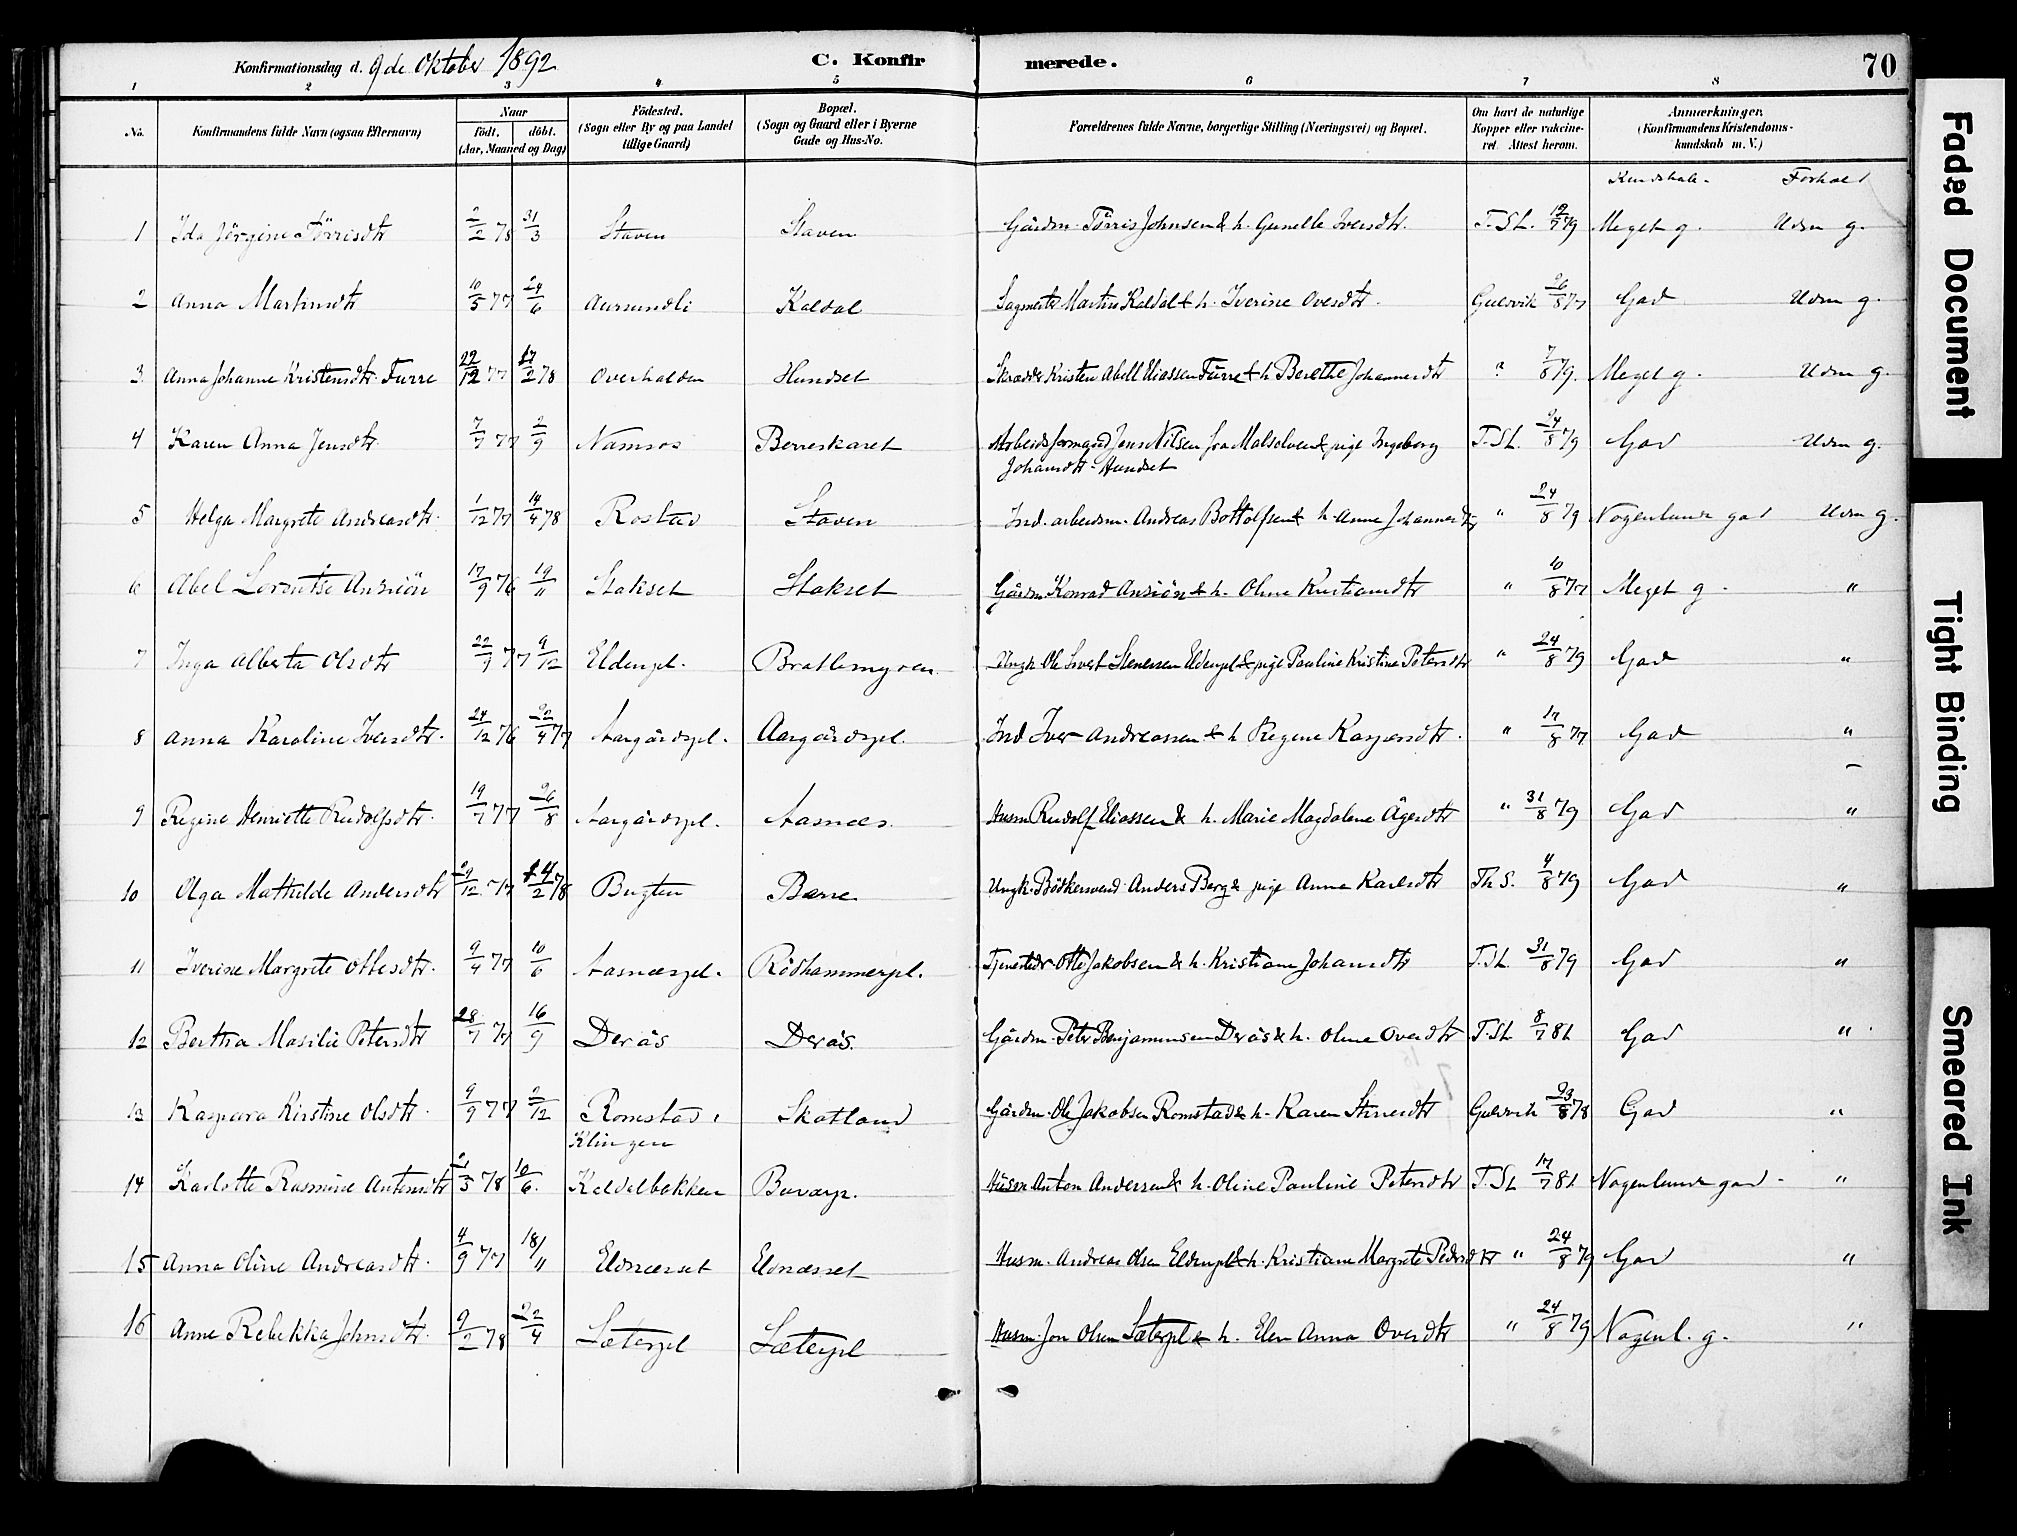 Konfirmationsdag d. 9de Oktober 1892
C. Konfirmerede.
70
1 2 3 4 5 6 7 8
No. Konfirmandens fulde Navn (ogsaa Efternavn) Naar födt. döbt. (Aar, Maaned og Dag) Födested. (Sogn eller By og paa Landet tillige Gaard) Bopæl. (Sogn og Gaard eller i Byerne Gade og Hus-No. Forældrenes fulde Navne, borgerlige Stilling (Næringsvei) og Bopæl. Om havt de naturlige Kopper eller vakcineret. Attest herom. Anmærkninger. (Konfirmandens Kristendomskundskab m. V.)
Kundskab. Forhold
1 Ida Jörgine Törrisdtr 2/2 78 31/3 Staven Staven Gårdm. Törris Johnsen & h. Gunelle Iversdtr. T. St. 12/7 79 Meget g. Udm g.
2 Anna Martinsdtr 10/5 77 24/6 Aursundli Kaldal Sagmester Martin Kaldal & h. Iverine Ovesdtr. Gulsvik 26/8 77 God Udm g.
3 Anna Johanne Kristensdtr. Furre 22/12 77 17/2 78 Overhalden Hundset Skrædder Kristen Abell Eliassen Furre & h Berethe Johannesdtr " 7/8 79. Meget g. Udm g.
4 Karen Anna Jensdtr. 7/7 77 2/9 Namsos Berreskaret Arbeidsformand Jens Nilsen fra Malselven & pige Ingeborg T. St. 24/8 79 God Udm g.
Johansdtr. Hundset
5 Helga Margrete Andreasdtr. 1/12 77 14/4 78 Rostad Staven Ind. arbeidsm. Andreas Bottolfsen & h. Anne Johannesdtr " 24/8 79 Nogenlunde god Udm g.
6 Abel Lorentse Ansiön 17/9 76 19/" Stakset Stakset Gårdm Konrad Ansiön & h. Oline Kristiansdtr " 10/8 77 Meget g. "
7 Inga Alberta Olsdtr 22/9 77 9/12 Eldenpl. Bratlimyren Ungk. Ole Sivert Stenersen Eldenpl & pige Pauline Kristine Petersdtr " 24/8 79 God "
8 Anna Karoline Iversdtr. 24/12 76 22/4 77 Aargårdspl. Aargårdspl. Ind. Iver Andreassen & h Regine Kasparsdtr. " 17/8 77 God "
9 Regine Henriette Rudolfsdtr. 19/7 77 26/8 Aargårdspl. Aasnæs. Husm Rudolf Eliassen & h. Marie Magdalene Ågesdtr " 31/8 79 God "
10 Olga Mathilde Andersdtr 29/12 77 14/2 78 Bugten Berre Ungk. Bödkersvend Anders Berg & pige Anna Karlsdtr Th S. 4/8 79 God "
11 Iverine Margrete Ottesdtr. 9/4 77 10/6 Aasnæspl. Rödhammerpl. Tjenestedr. Otte Jakobsen & h. Kristiane Johansdtr T. St. 31/8 79 God "
12 Bertha Masilie Petersdtr 28/7 77 16/9 Derås Derås. Gårdm. Peter Benjaminsen Derås & h. Oline Ovesdtr T. St 8/7 81 God "
13 Kaspara Kirstine Olsdtr. 9/9 77 2/12 Romstad, Skotland Gårdm. Ole Jakobsen Romstad & h. Karen Stinesdtr Gulsvik 23/8 78 God "
Klingen
14 Karlotte Rasmine Antonsdtr 21/3 78 10/6. Keldelbakken Bovarp. Husm Anton Andersen & h. Oline Pauline Petersdtr T. St 17/7 81 Nogenlunde god. "
15 Anna Oline Andreasdtr. 4/9 77 18/" Eldnæsset Eldnæsset Husm. Andreas Olsen Eldenpl & h. Kristiane Margrete Pedersdtr " 24/8 79 God "
16 Anne Rebekka Johnsdtr. 9/2 78 22/4 Sæterpl Sæterpl Husm. Jon Olsen Sæterpl & h. Elen Anna Ovesdtr " 24/8 79 Nogenl. g. "
Faded Document
Tight Binding
Smeared Ink